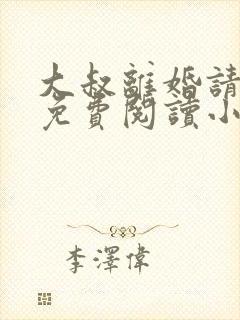 大叔離婚請
免費閱讀小
李澤偉